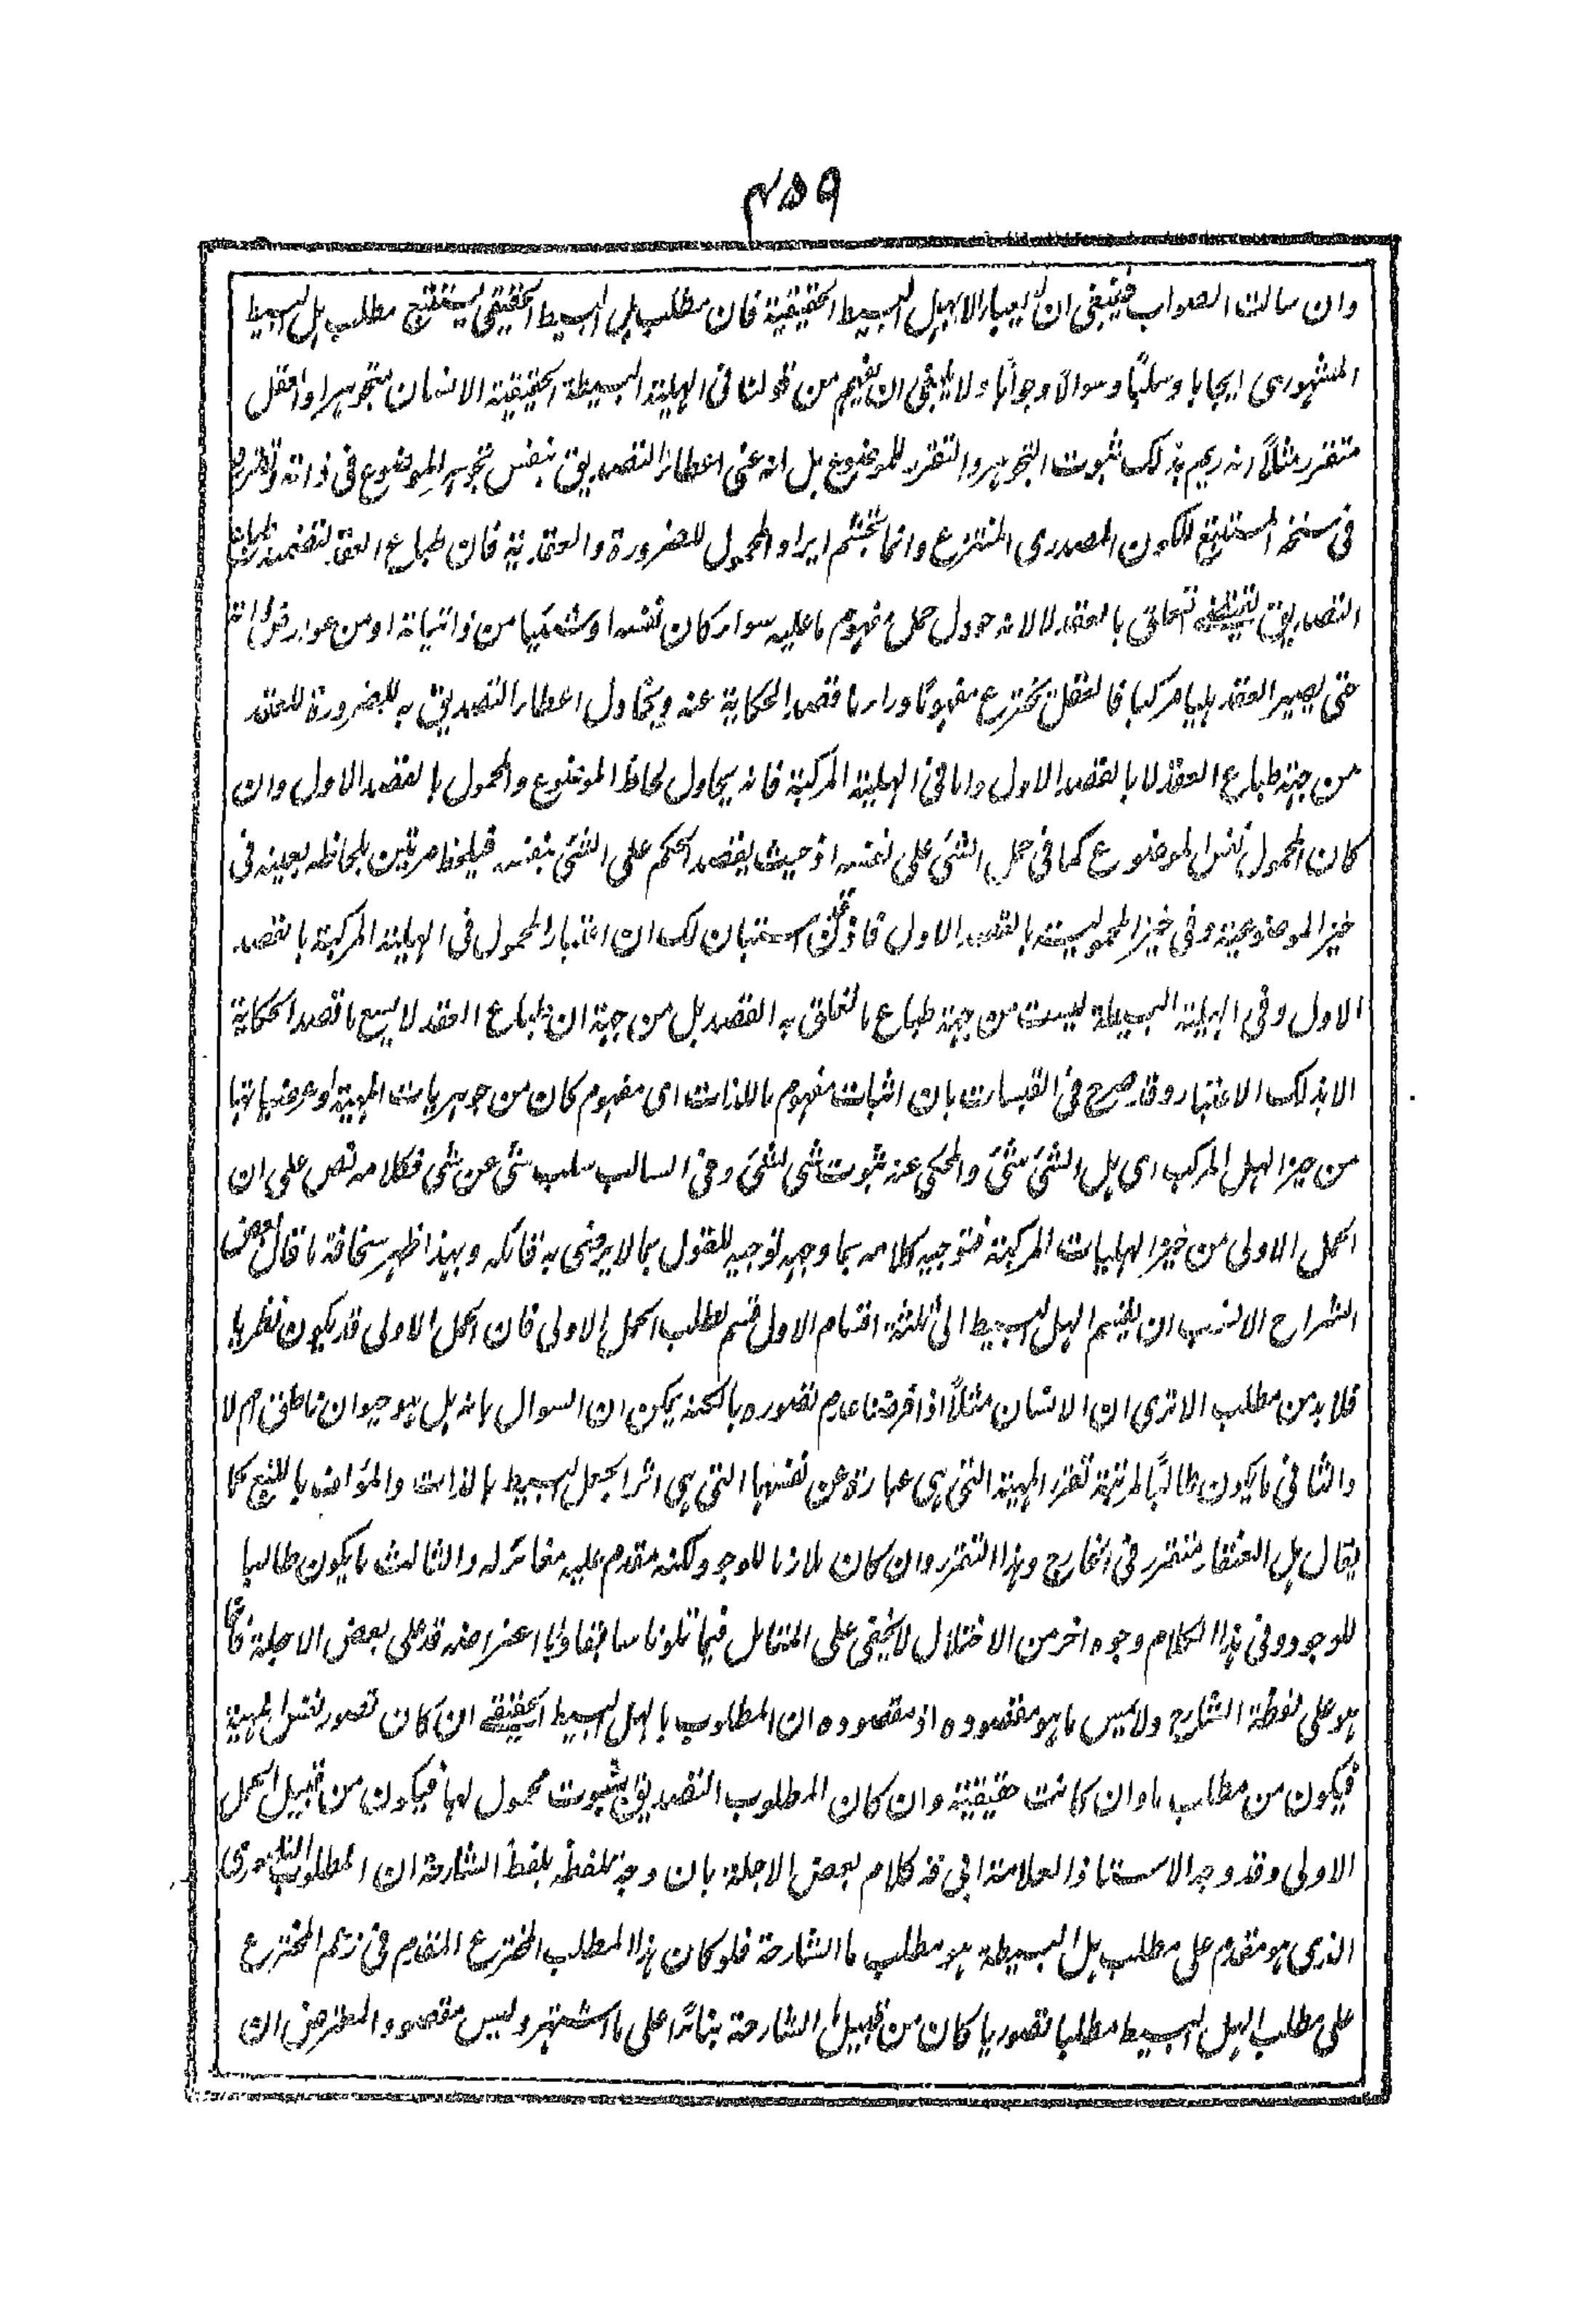 ۴۵۹
وان سالت الصواب فينبغي ان لا يعبا الا بالهل البسيط الحقيقية فان مطلب هل البسيط الحقيقي يستتبع مطلب هل البسيط
المشهوري ايجابا وسلبًا وسوالًا وجوابًا ولا ينبغي ان يفهم من قولنا في الهلية البسيطة الحقيقية الانسان متجوهر او العقل
متقرر مثلًا انه ريم بذلك ثبوت التجوهر والتقرر للموضوع بل انه عنى اعطاء التصديق بنفس تجوهر الموضوع في ذاته وتقرره
في سنخه المستتبع للكون المصدري المنتزع وانما تجشم ايراد المحمول للضرورة والعقدية فان طباع العقد
التصديق تعلق بالعقد لا لانه حوول حمل مفهوم ما عليه سواء كان نفسه او شيئيا من ذاتياته او من عوارض ذاته
حتى يصير العقد هليا مركبا فالعقل يخترع مفهومًا وراء ما قصد الحكاية عنه ويحاول اعطاء التصديق به للضرورة للعقد
من جهة طباع العقد لا بالقصد الاول واما في الهلية المركبة فانه يحاول لحاظ الموضوع والمحمول بالقصد الاول وان
كان المحمول نفس الموضوع كما في حمل الشئ على نفسه اذ حيث يقصد الحكم على الشئ بنفسه فيلحظ مرتين بلحاظه بعينه في
حيز الموضوعية وفي حيز المحمولية بالقصد الاول فاذن استبان لك ان اعتبار المحمول في الهلية المركبة بالقصد
الاول وفي الهلية البسيطة ليست من جهة طباع ما تعلق به القصد بل من جهة ان طباع العقد لا يسع ما قصد الحكاية
الا بذلك الاعتبار وقد صرح في القبسات بان اثبات مفهوم ما للذات اي مفهوم كان من جوهريات المهية او عرضياتها
من حيز الهل المركب اي هل الشئ شئ والمحكي عنه ثبوت شئ لشئ وفي السالب سلب شئ عن شئ فكلامه نص على ان
الحمل الاولى من حيز الهليات المركبة فتوجيه كلامه بما وجه توجيه للقول بما لا يرضى به قائله وبهذا ظهر سخافة ما قال بعض
الشراح الانسب ان يقسم الهل البسيط الى ثلثة اقسام الاول قسم لطلب الحمل الاولى فان الحمل الاولى قد يكون نظريا
فلا بد من مطلب الا ترى ان الانسان مثلًا اذا فرضنا عدم تصوره بالكنه يمكن ان السوال بانه هل هو حيوان ناطق ام لا
والثاني ما يكون طالبًا لمرتبة تقرر المهية التي هي عبارة عن نفسها التي هي اثر الجعل البسيط بالذات والمؤلف بالتبع كما
يقال هل العنقاء متقرر في الخارج وهذا التقرر وان كان ملازما للوجود لكنه مقدم عليه مغائر له والثالث ما يكون طالبا
للوجود وفي هذا الكلام وجوه اخر من الاختلال لا يخفى على المتامل فيما تلونا سابقا واما اعتراضه قد على بعض الاجلة فانما
هو على لفظة الشارح وليس ما هو مقصوده اذ مقصوده ان المطلوب بالهل البسيط الحقيقي ان كان تصور نفس المهية
فيكون من مطالب ما وان كانت حقيقية وان كان المطلوب التصديق بثبوت محمول لها فيكون من قبيل الحمل
الاولى وقد وجه الاستاذ العلامة ابي قد كلام بعض الاجلة بان وجه تلفظه بلفظ الشارحة ان المطلوب التصوري
الذي هو مقدم على مطلب هل البسيطة هو مطلب ما الشارحة فلو كان هذا المطلب المخترع المقدم في زعم المخترع
على مطلب الهل البسيط مطلبا تصوريا كان من قبيل الشارحة بنائًا على ما اشتهر وليس مقصود المعترض ان